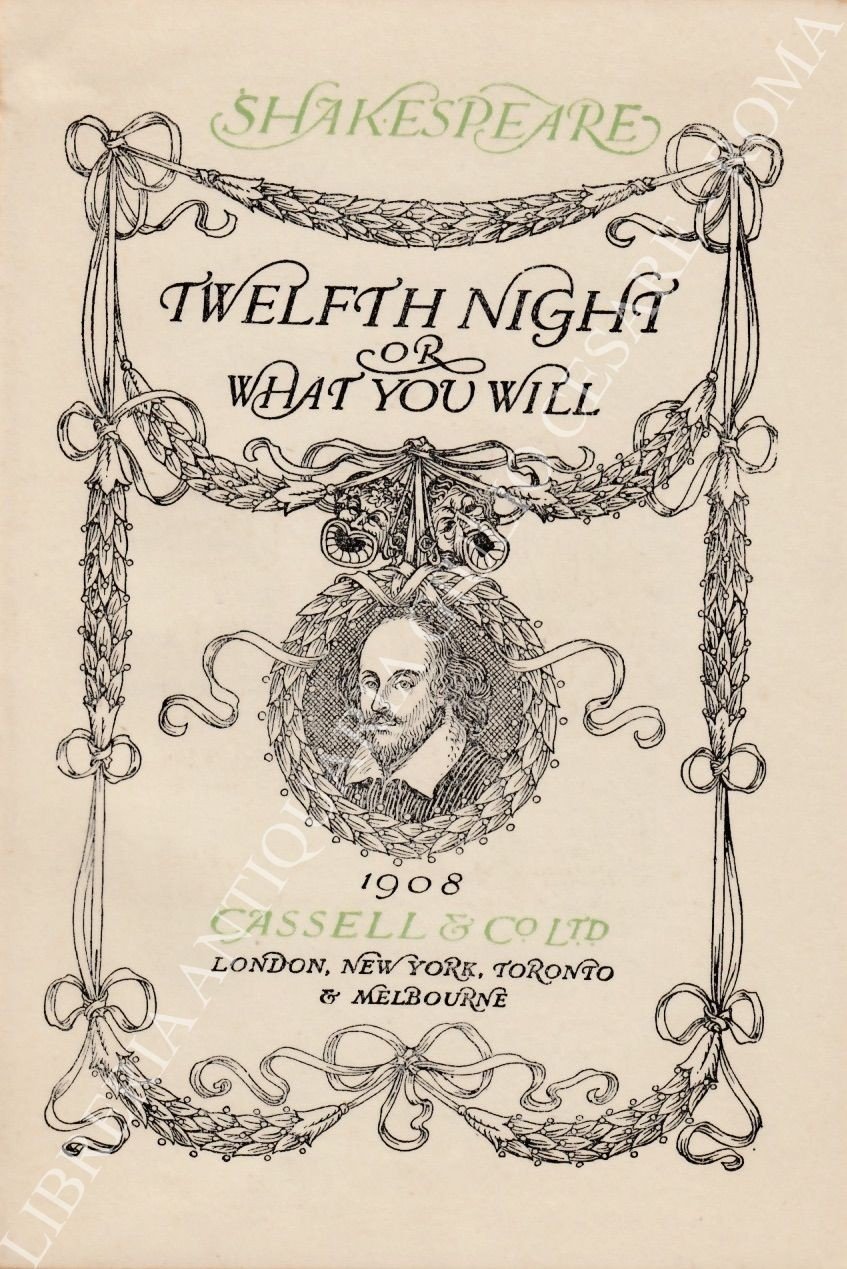 SHAKESPEARE
TWELFTH NIGHT
OR
WHAT YOU WILL
1908
CASSELL & CO LTD
LONDON, NEW YORK, TORONTO
& MELBOURNE
LIBRERIA ANTIQUARIA GIULIO CESARE - ROMA